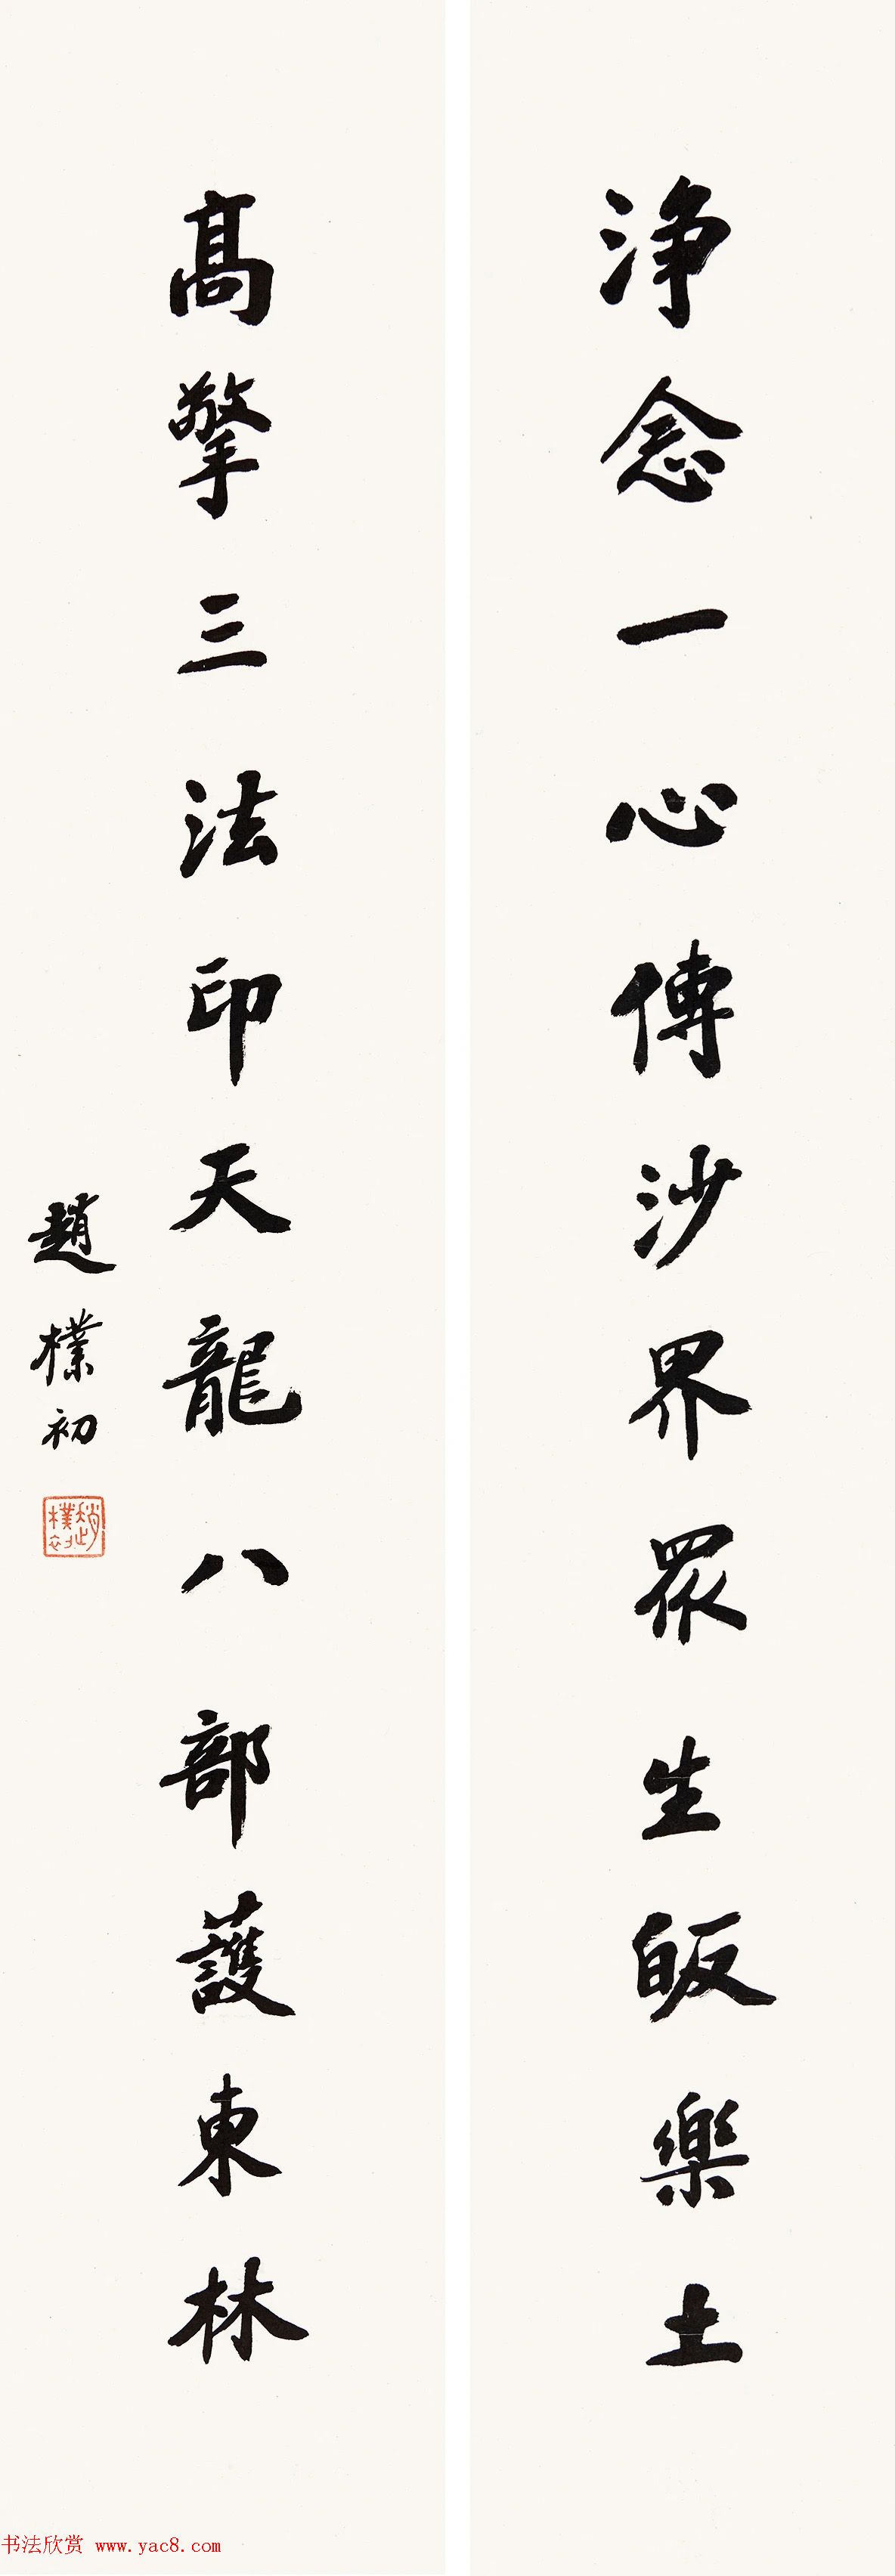 淨念一心傳沙界眾生皈樂土
高擎三法印天龍八部護東林
趙樸初
趙樸初
书法欣赏 www.yac8.com